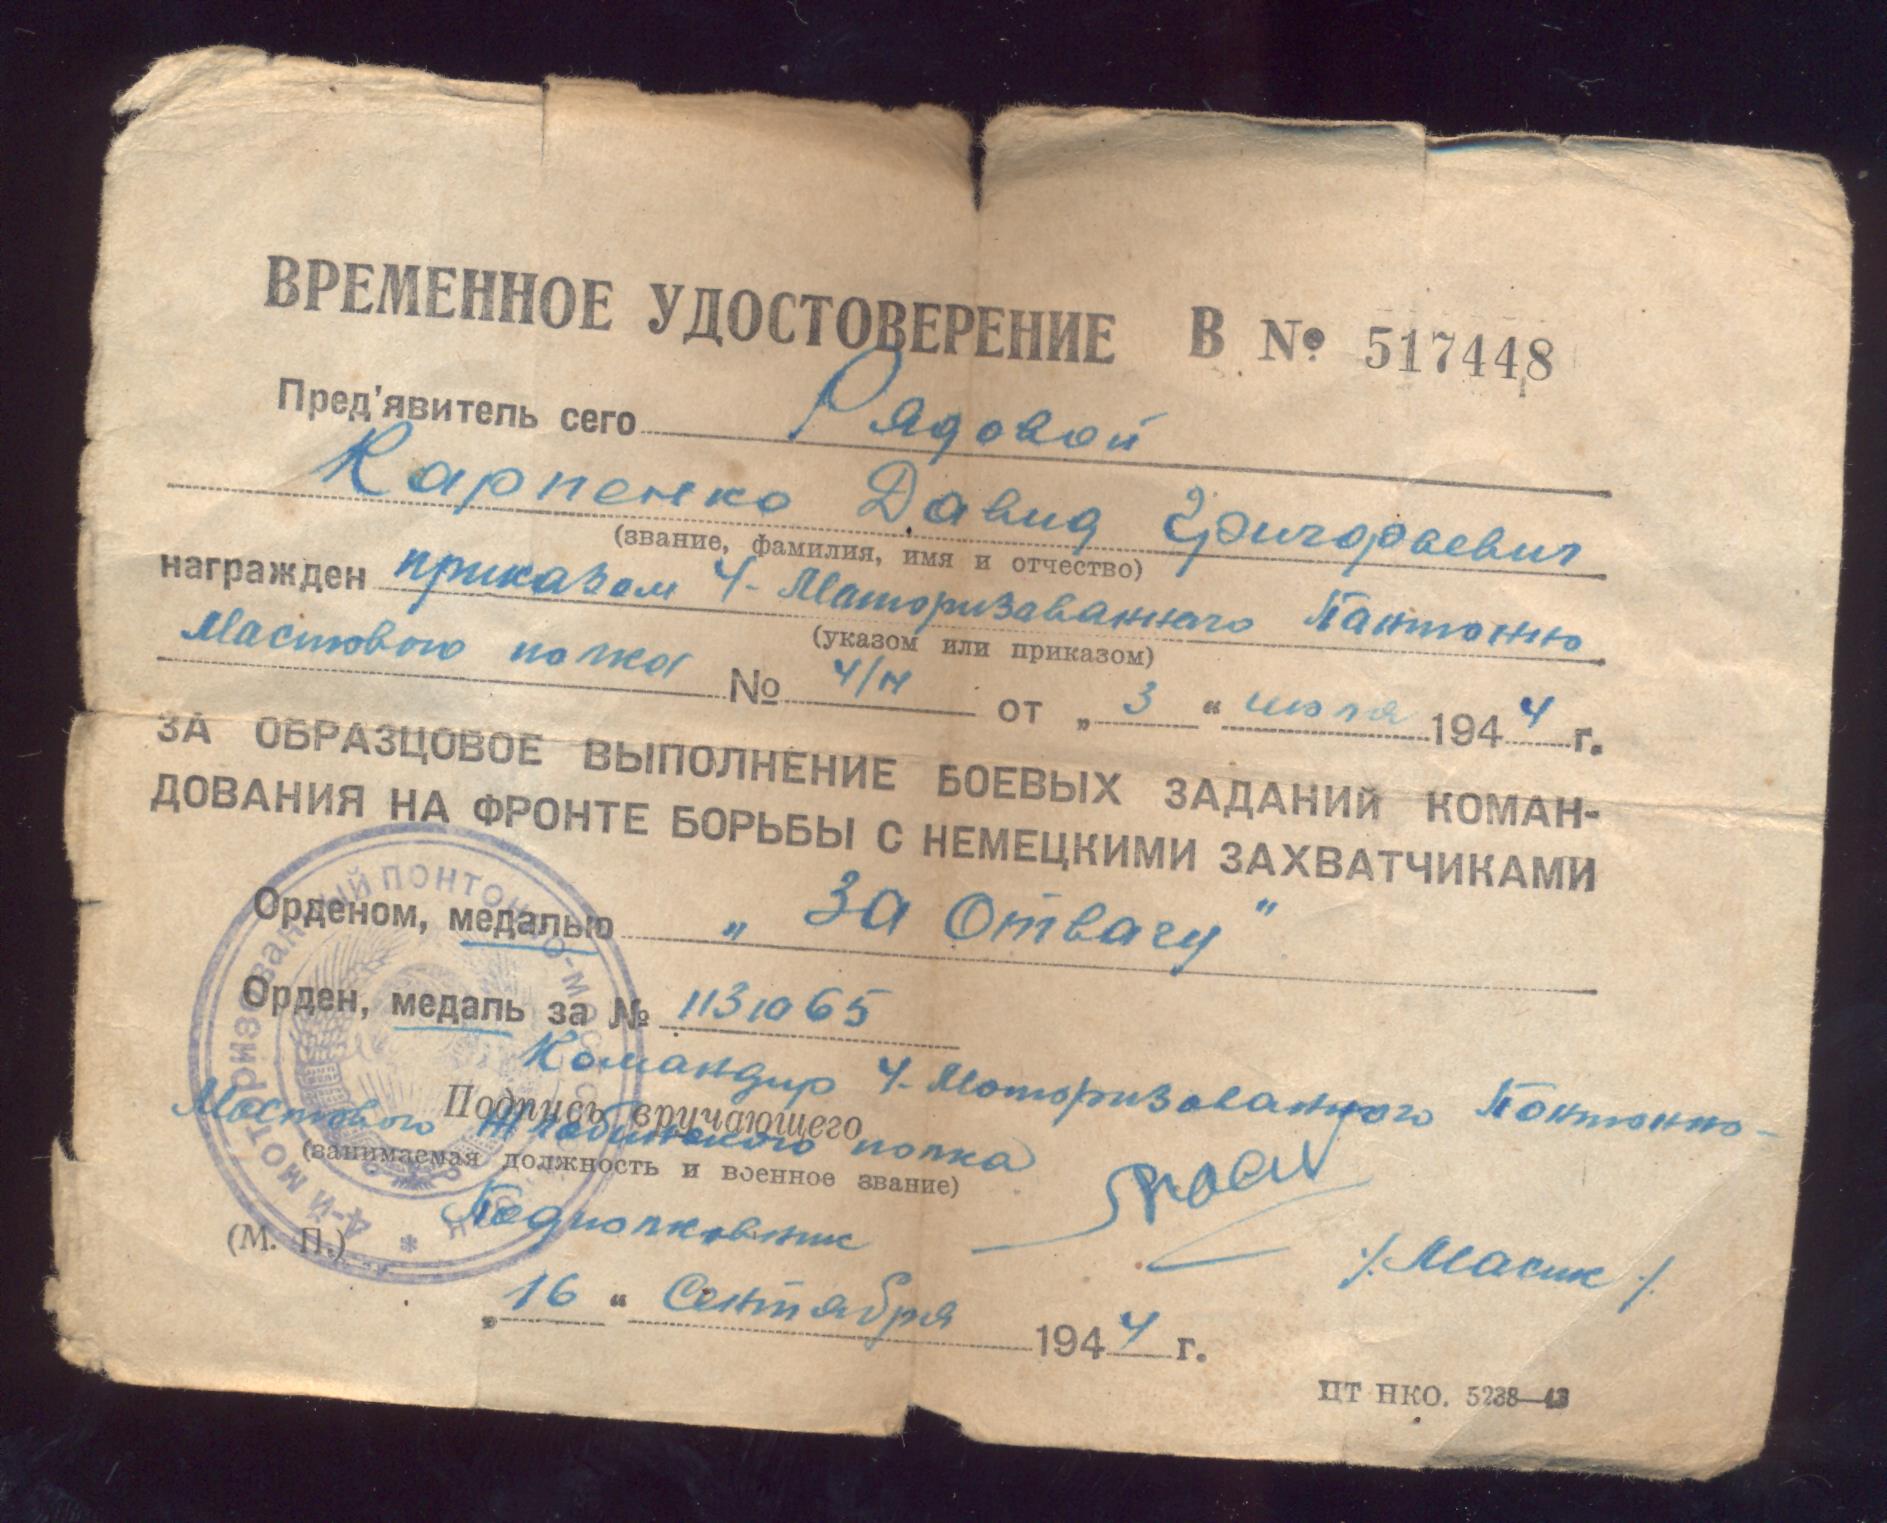 ВРЕМЕННОЕ УДОСТОВЕРЕНИЕ В № 517448
Пред'явитель сего Рядовой
Карпенко Давид Григорьевич
(звание, фамилия, имя и отчество)
награжден приказом 4-Моторизованного Понтонно
(указом или приказом)
Мостового полка № 4/н от „ 3 “ июля 1944 г.
ЗА ОБРАЗЦОВОЕ ВЫПОЛНЕНИЕ БОЕВЫХ ЗАДАНИЙ КОМАН-
ДОВАНИЯ НА ФРОНТЕ БОРЬБЫ С НЕМЕЦКИМИ ЗАХВАТЧИКАМИ
Орденом, медалью „ За Отвагу "
Орден, медаль за № 1131065
Командир 4-Моторизованного Понтонно-
Подпись вручающего
Мостового Жлобинского полка
(занимаемая должность и военное звание)
Подполковник
/.Масик./
(М. П.)
„ 16 “ Сентября 1944 г.
ЦТ НКО. 5238—43
4-Й МОТОРИЗОВАННЫЙ ПОНТОННО-МОСТ